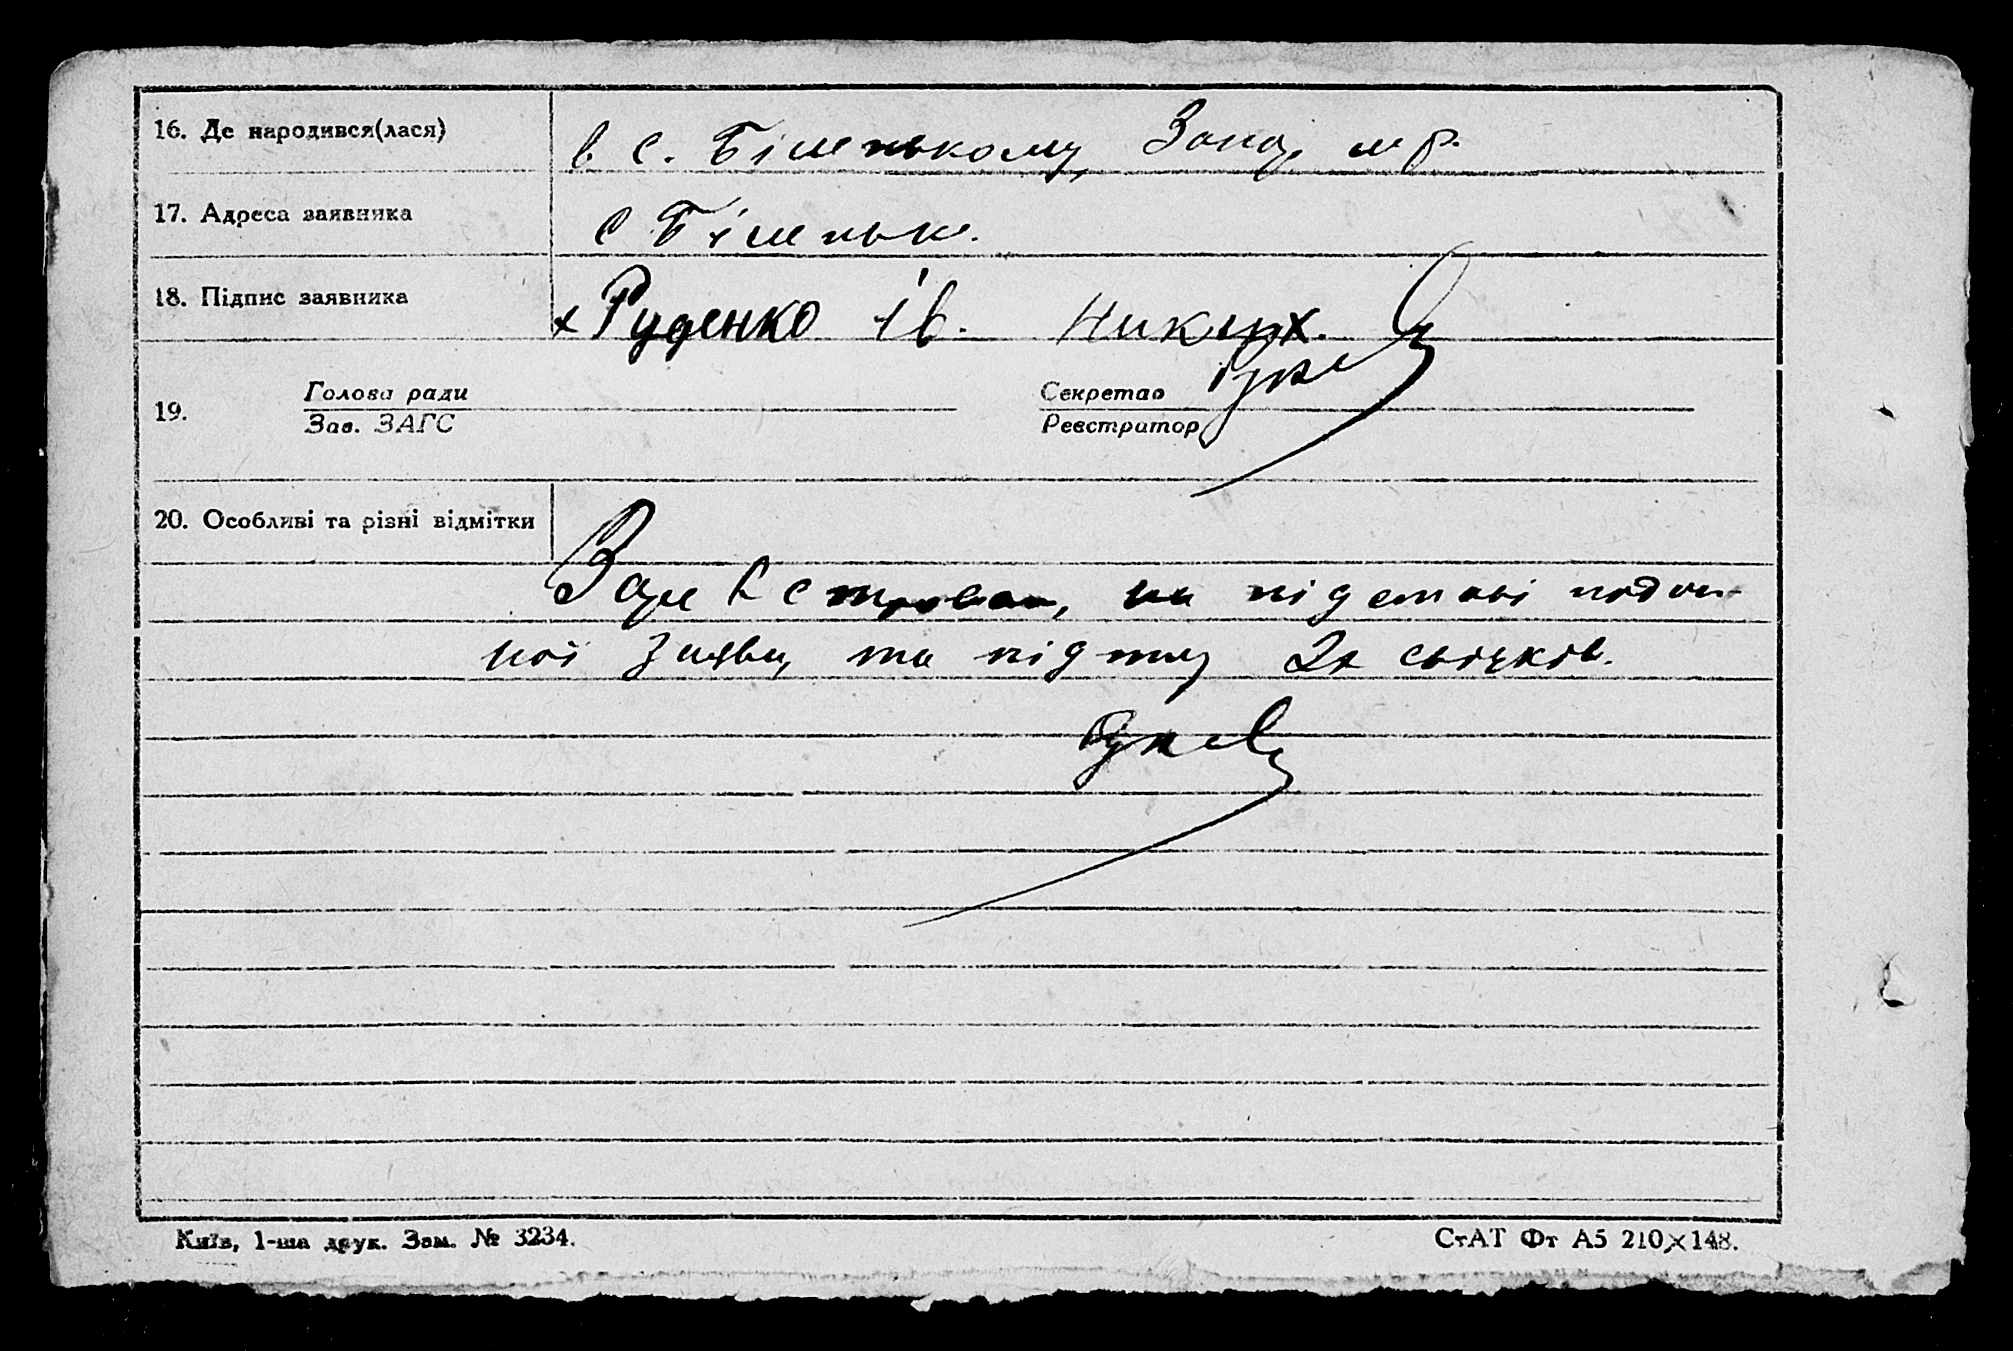 16. Де народився(лася)
в с. Біленькому, Запор. м р.
17. Адреса заявника
с Біленьке.
18. Підпис заявника
х Руденко ів. Никих.
19. Голова ради Секретар
Зав. ЗАГС Реєстратор
20. Особливі та різні відмітки
Зареєстрован, на підставі подан-
ної заяви, та підпису 2х свідків.
Київ, 1-ша друк. Зам. № 3234.
СтАТ Фт А5 210×148.